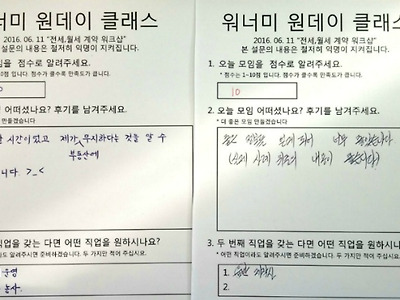 너미 원데이 클래스
2016. 06. 11 "전세,월세 계약 워크샵"
본 설문의 내용은 철저히 익명이 지켜집니다.
모임을 점수로 알려주세요.
* 점수는 1~10점 입니다. 점수가 클수록 만족도가 큽니다.
어떠셨나요? 후기를 남겨주세요.
만들겠습니다
시간이 없고 제가 무지하다는 것을 알 수
부동산에
니다. >_<
직업을 갖는 다면 어떤 직업을 원하시나요?
알려주시면 준비하겠습니다. 두 가지만 적어 주십시요.
운영
농사.
워너미 원데이 클래스
2016. 06. 11 "전세,월세 계약 워크샵"
본 설문의 내용은 철저히 익명이 지켜집니다.
1. 오늘 모임을 점수로 알려주세요.
* 점수는 1~10점 입니다. 점수가 클수록 만족도가 큽니다.
10
2. 오늘 모임 어떠셨나요? 후기를 남겨주세요.
* 더 좋은 모임 만들겠습니다
좋은 정보를 얻게 되어 너무 좋았습니다
(실제 사례 위주의 내용이 좋았습니다)
3. 두 번째 직업을 갖는 다면 어떤 직업을 원하시나요?
* 어떤 직업이라도 알려주시면 준비하겠습니다. 두 가지만 적어 주십시요.
1.
2.